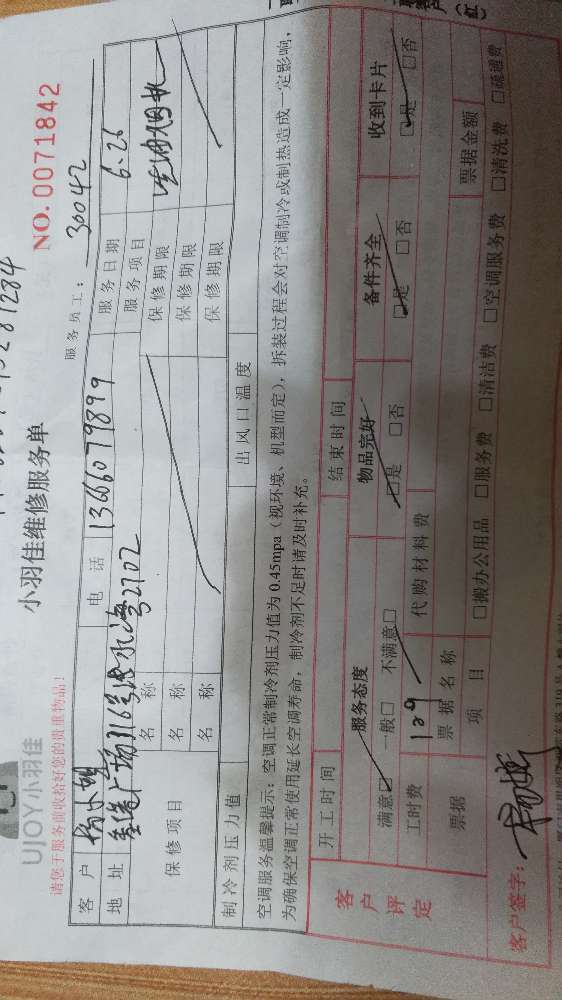 UJOY小羽佳
小羽佳维修服务单
NO. 0071842
请您于服务前收拾好您的贵重物品!
服务员工: 30042
客户 杨小姐 电话 13666079899 服务日期 6.26
地址 2702 服务项目
保修项目 名称 保修期限
名称 保修期限
名称 保修期限
制冷剂压力值 出风口温度
空调服务温馨提示: 空调正常制冷剂压力值为 0.45mpa (视环境、机型而定), 拆装过程会对空调制冷或制热造成一定影响,
为确保空调正常使用延长空调寿命, 制冷剂不足时请及时补充。
开工时间 结束时间
客户评定
服务态度 物品完好 备件齐全 收到卡片
满意☑ 一般□ 不满意□ ☑是 □否 ☑是 □否 ☑是 □否
工时费 189 代购材料费
票据 票据名称 票据金额
项目 □搬办公用品 □服务费 □清洁费 □空调服务费 □清洗费 □疏通费
客户签字: